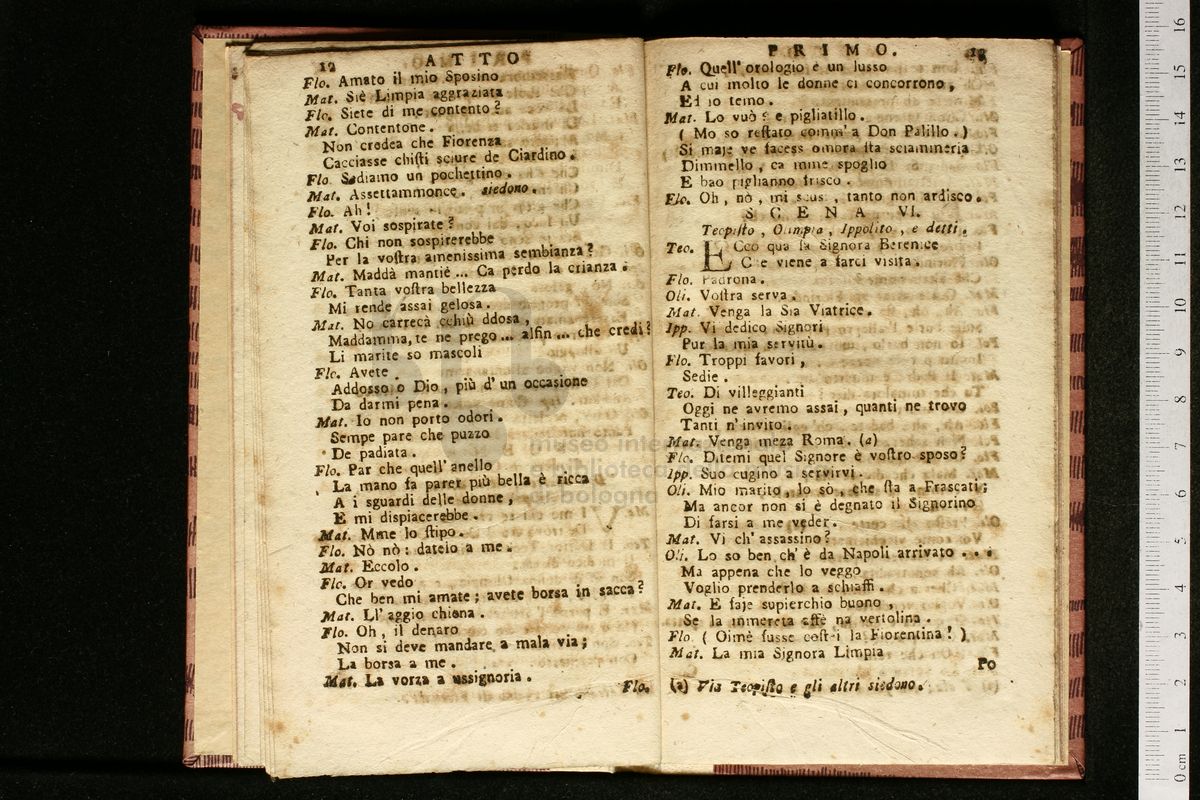 12 ATTO
Flo. Amato il mio Sposino
Mat. Siè Limpia aggraziata
Flo. Siete di me contento?
Mat. Contentone.
Non credea che Fiorenza
Cacciasse chisti sciure de Ciardino.
Flo. Sediamo un pochettino.
Mat. Assettammonce. siedono.
Flo. Ah!
Mat. Voi sospirate?
Flo. Chi non sospirerebbe
Per la vostra amenissima sembianza?
Mat. Maddà mantiè ... Ca perdo la crianza.
Flo. Tanta vostra bellezza
Mi rende assai gelosa.
Mat. No carrecà cchiù ddosa,
Maddamma, te ne prego ... alfin ... che credi?
Li marite so mascoli
Flo. Avete
Addosso o Dio, più d'un occasione
Da darmi pena.
Mat. Io non porto odori.
Sempe pare che puzzo
De padiata.
Flo. Par che quell'anello
La mano fa parer più bella è ricca
A i sguardi delle donne,
E mi dispiacerebbe.
Mat. Mme lo stipo.
Flo. Nò nò: datelo a me.
Mat. Eccolo.
Flo. Or vedo
Che ben mi amate; avete borsa in sacca?
Mat. Ll'aggio chiena.
Flo. Oh, il denaro
Non si deve mandare a mala via;
La borsa a me.
Mat. La vorza a ussignoria.
Flo.
PRIMO. 13
Flo. Quell'orologio è un lusso
A cui molto le donne ci concorrono,
Ed io temo.
Mat. Lo vuò? e pigliatillo.
(Mo so restato comm'a Don Palillo.)
Si maje ve facess omora sta sciammeria
Dimmello, ca mme spoglio
E bao piglianno frisco.
Flo. Oh, nò, mi scusi, tanto non ardisco.
SCENA VI.
Teopisto, Olimpia, Ippolito, e detti.
Teo. ECco qua la Signora Berenice
Che viene a farci visita.
Flo. Padrona.
Oli. Vostra serva.
Mat. Venga la Sia Viatrice.
Ipp. Vi dedico Signori
Pur la mia servitù.
Flo. Troppi favori,
Sedie.
Teo. Di villeggianti
Oggi ne avremo assai, quanti ne trovo
Tanti n'invito.
Mat. Venga meza Roma. (a)
Flo. Ditemi quel Signore è vostro sposo?
Ipp. Suo cugino a servirvi.
Oli. Mio marito, lo sò, che sta a Frascati;
Ma ancor non si è degnato il Signorino
Di farsi a me veder.
Mat. Vi ch'assassino?
Oli. Lo so ben ch'è da Napoli arrivato ...
Ma appena che lo veggo
Voglio prenderlo a schiaffi.
Mat. E faje supierchio buono,
Se la mmereta affè na vertolina.
Flo. (Oimè fusse costei la Fiorentina!)
Mat. La mia Signora Limpia
Po
(a) Via Teopisto e gli altri siedono.